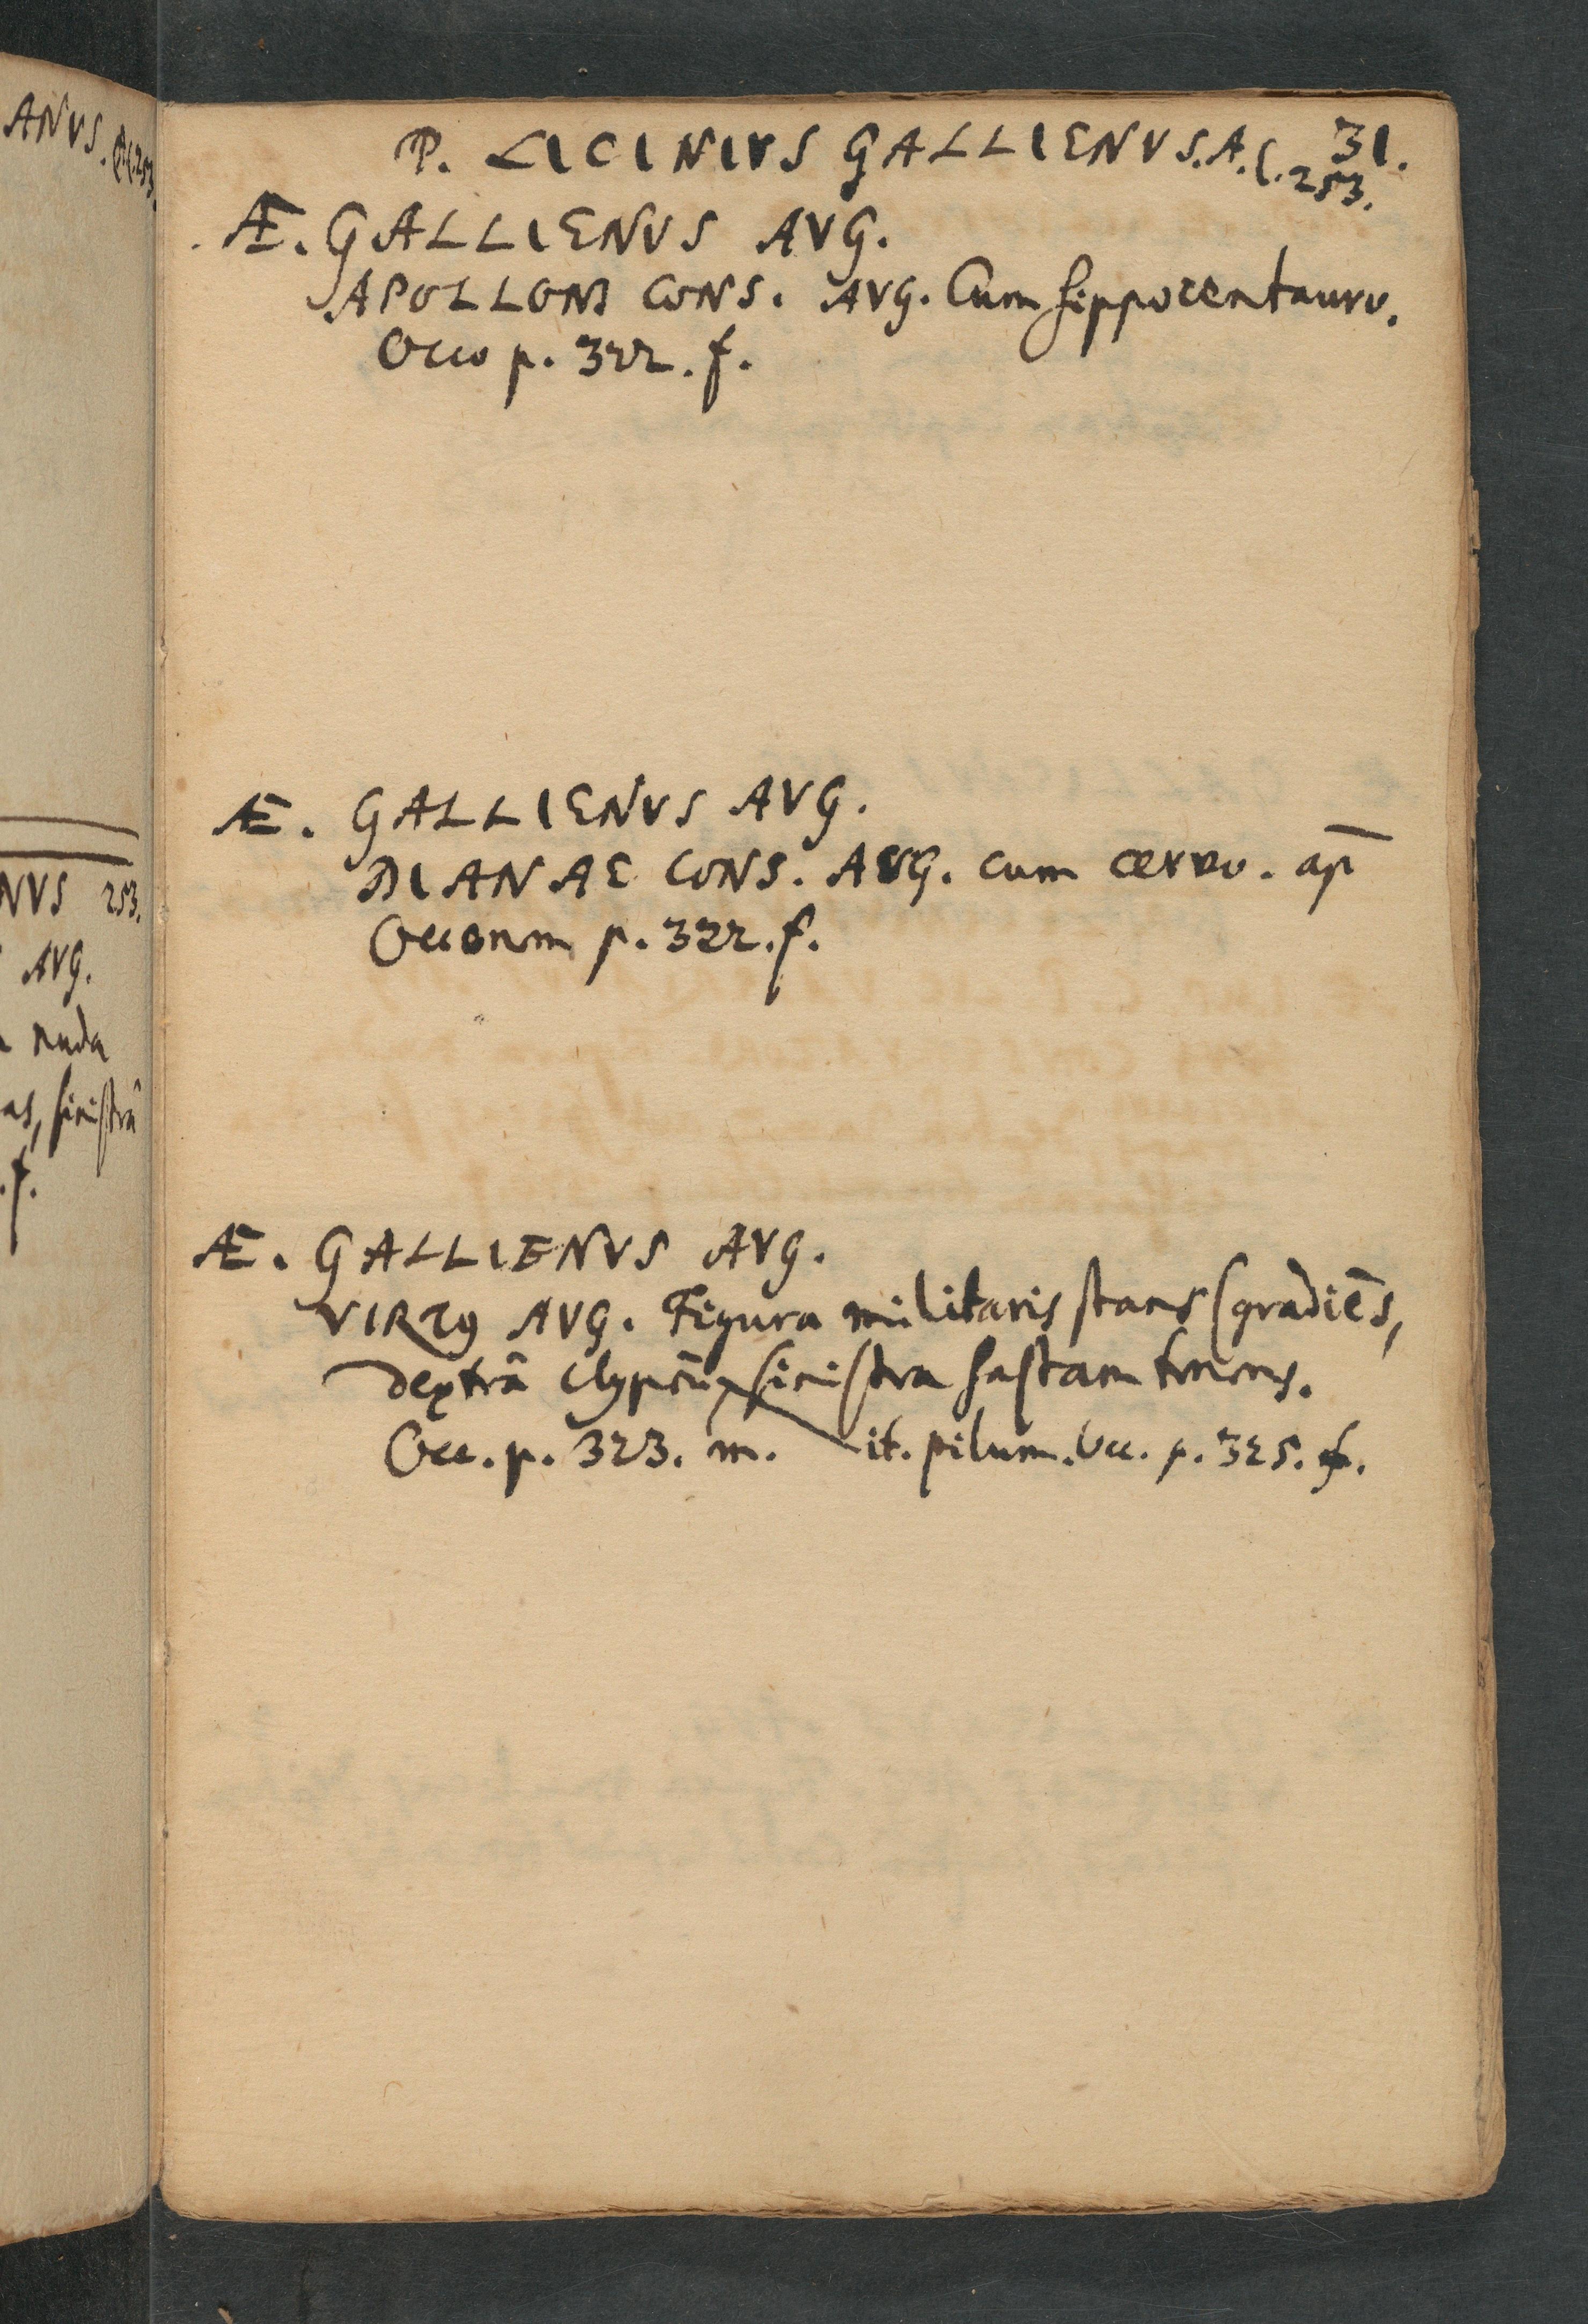 ANVS. 253.
NVS 253.
AVG.
nuda
as, sinistrâ
.f.
P. LICINIVS GALLIENVS. A. C. 253. 31.
Æ. GALLIENVS AVG.
APOLLONI CONS. AVG. Cum hippocentauro.
Occo p. 322. f.
Æ. GALLIENVS AVG.
DIANAE CONS. AVG. cum cervo. ap̄
Occonem p. 322. f.
Æ. GALLIENVS AVG.
VIRTꝰ AVG. Figura militaris stans (gradiēs,
dextrâ clypeū, sinistra hastam tenens.
Occ. p. 323. m. it. pilum. Occ. p. 325. f.